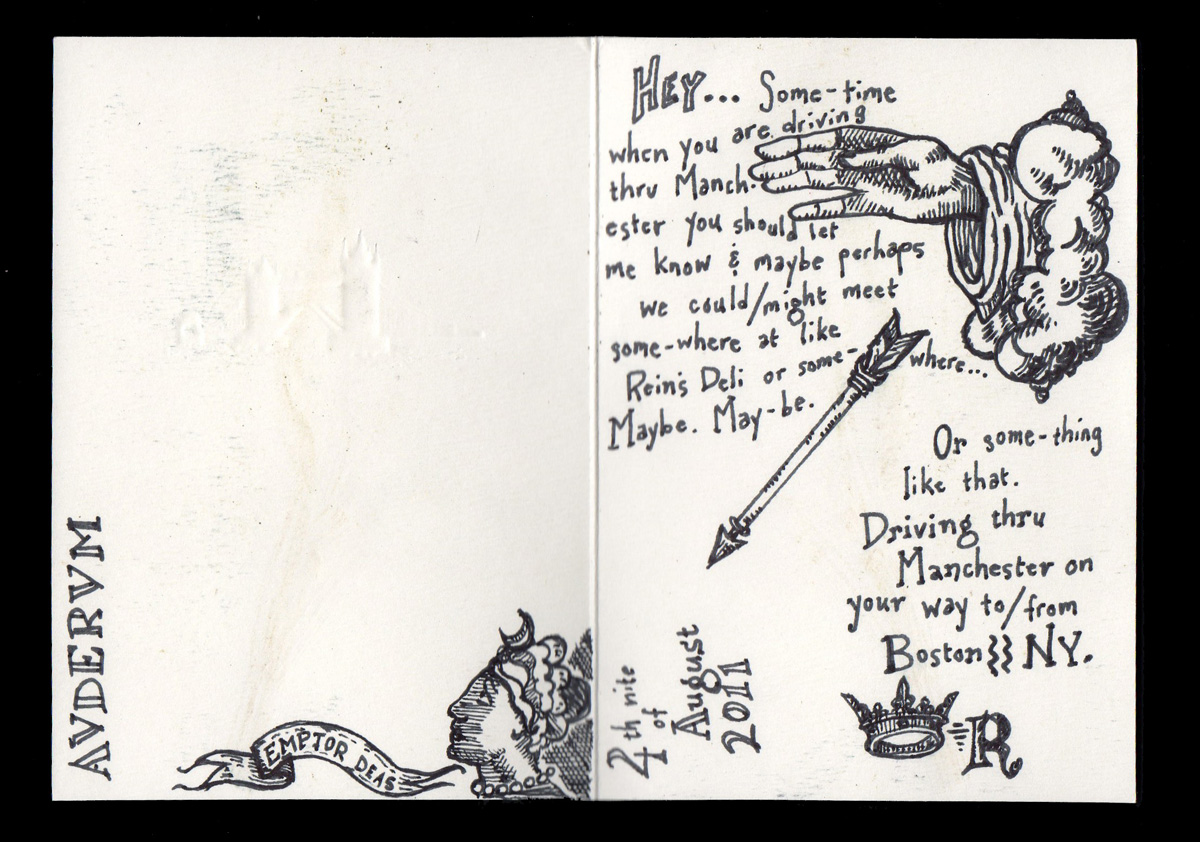 AVDERVM
EMPTOR DEAS
HEY... Some-time
when you are driving
thru Manch-
ester you should let
me know & maybe perhaps
we could/might meet
some-where at like
Rein's Deli or some-
where...
Maybe. May-be.
Or some-thing
like that.
Driving thru
Manchester on
your way to/from
Boston NY.
4th nite
of
August
2011
R